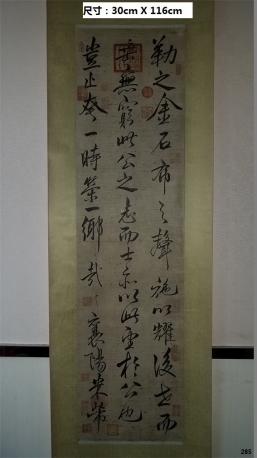 尺寸：30cm X 116cm
勒之金石布之聲施以耀後世而
垂無窮此公之志而士亦以此望於公也
豈止夸一時榮一鄉哉襄陽米芾
285